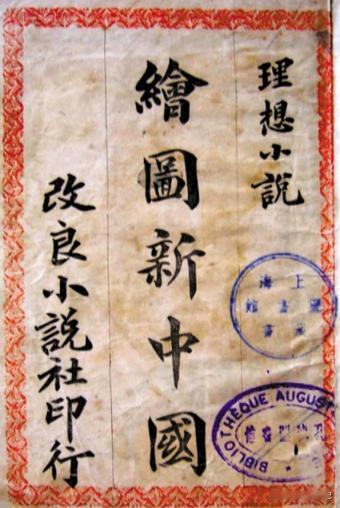 理想小説
繪圖新中國
改良小説社印行
上海圖書館
BIBLIOTHÈQUE AUGUST